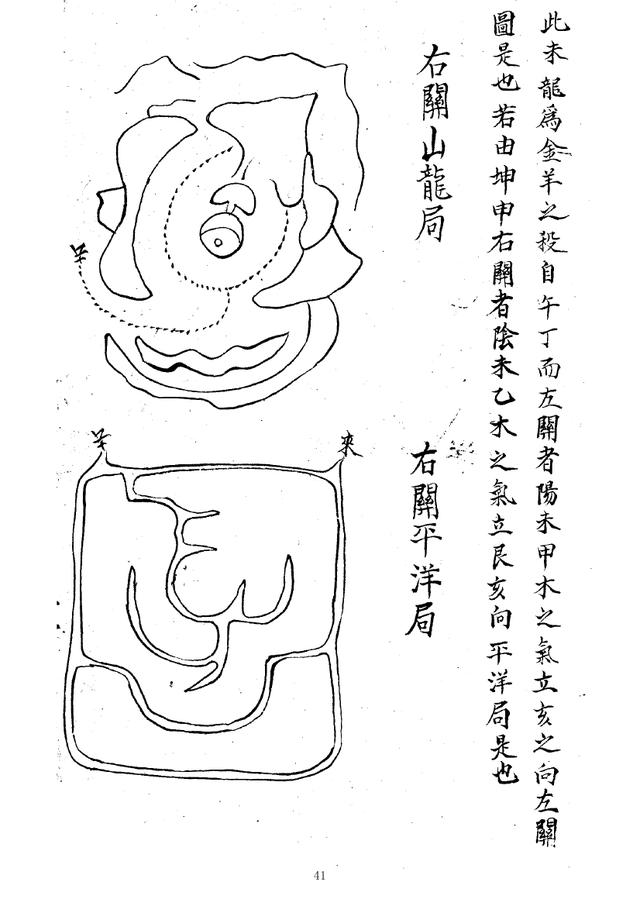 此未龍為金羊之殺自午丁而左關者陽未甲木之氣立亥之向左關
圖是也若由坤申右關者陰未乙木之氣立艮亥向平洋局是也
右關山龍局
去
右關平洋局
來
去
41